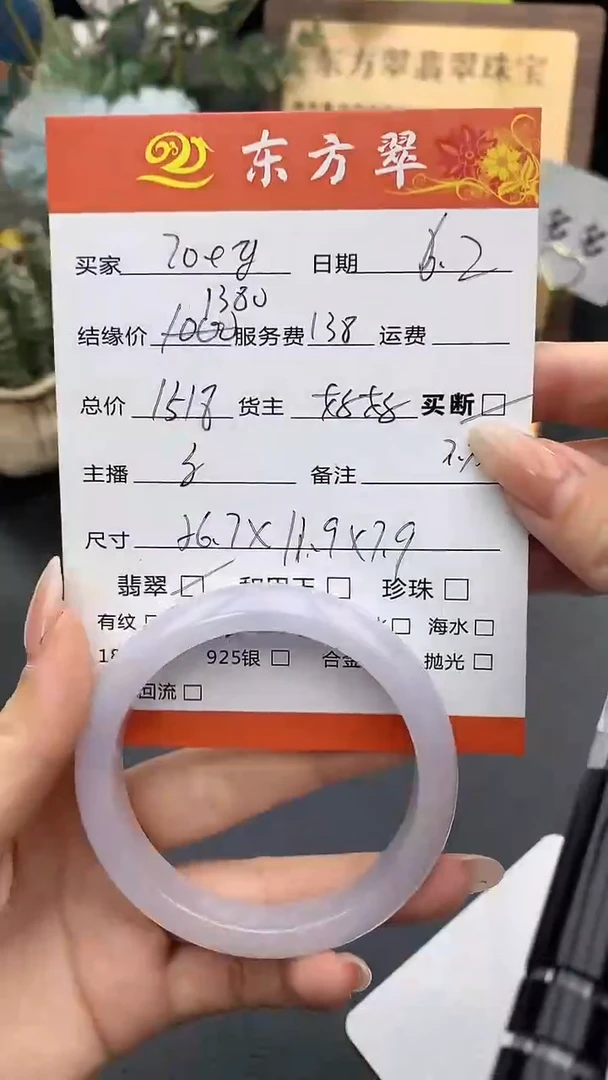 东方翠翡翠珠宝
东方翠
买家 Zoey 日期 6.2
1380
结缘价 1000 服务费 138 运费
总价 1518 货主 买断
主播 备注
尺寸 56.7×11.9×7.9
翡翠 珍珠
有纹 海水
925银 合金 抛光
回流